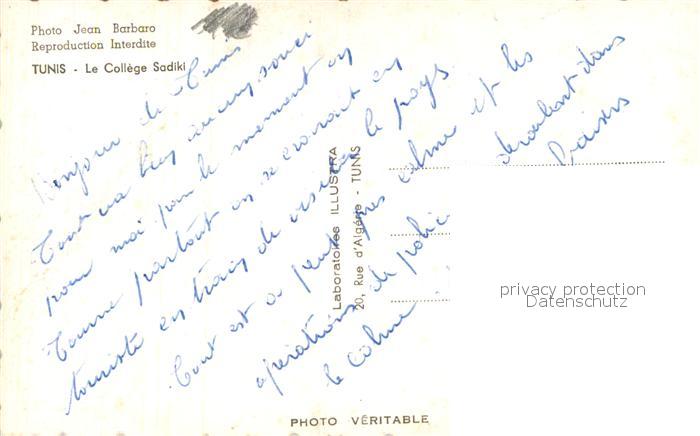 Photo Jean Barbaro
Reproduction Interdite
TUNIS - Le Collège Sadiki
Bonjour de Tunis
Tout va bien aucun souci
pour moi pour le moment on
tourne partout on se croirait en
touriste en train de visiter le pays.
Tout est à peu près calme et les
opérations de police se déroulent dans
le calme.
Baisers
Laboratoires ILLUSTRA
20, Rue d'Algérie - TUNIS
PHOTO VÉRITABLE
privacy protection
Datenschutz